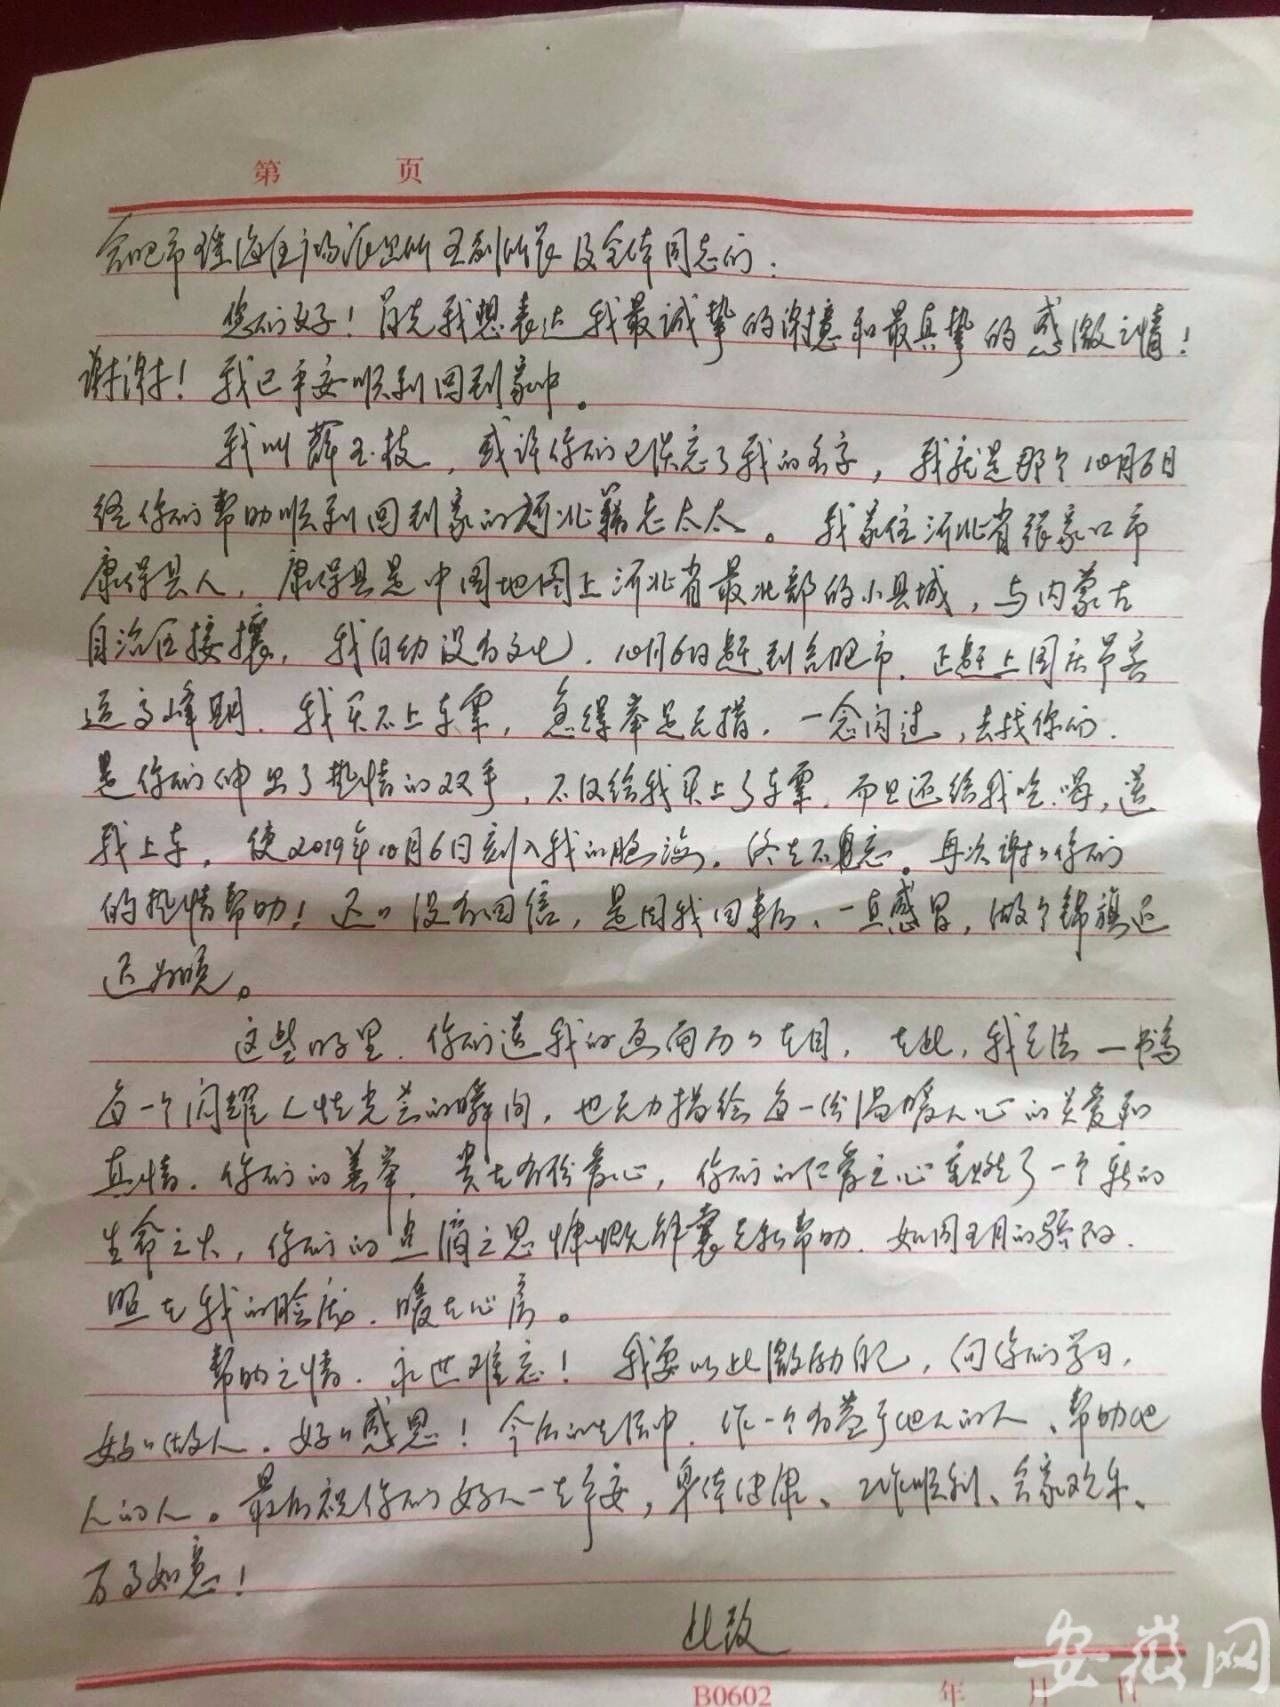 第 页
合肥市瑶海区市场派出所王副所长及全体同志们：
您们好！首先我想表达我最诚挚的谢意和最真挚的感激之情！
谢谢！我已平安顺利回到家中。
我叫薛玉枝，或许你们已误忘了我的名字，我就是那个10月6日
经你们帮助顺利回到家的河北籍老太太。我家住河北省张家口市
康保县人，康保县是中国地图上河北省最北部的小县城，与内蒙古
自治区接攘，我自幼没有文化，10月6日赶到合肥市，正赶上国庆节客
运高峰期，我买不上车票，急得举足无措，一念闪过，去找你们，
是你们伸出了热情的双手，不仅给我买上了车票，而且还给我吃、喝，送
我上车，使2019年10月6日刻入我的脑海，终生不忘。再次谢谢你们
的热情帮助！迟迟没有回信，是因我回来后，一直感冒，做个锦旗迟
迟为晚。
这些日子里，你们送我的画面历历在目，在此，我无法一一书写
每一个闪耀人性光芒的瞬间，也无力描绘每一份温暖人心的关爱和
真情，你们的善举，贵在有份爱心，你们的仁爱之心重燃了一个新的
生命之火，你们的点滴之恩慷慨解囊无私帮助，如同五月的骄阳，
照在我的脸庞，暖在心房。
帮助之情，永世难忘！我要以此激励自己，向你们学习，
好好做人，好好感恩！今后的生活中，作一个有益于他人的人、帮助他
人的人。最后祝你们好人一生平安，身体健康、工作顺利、合家欢乐、
万事如意！
此致
B0602 年 月 日
安徽网